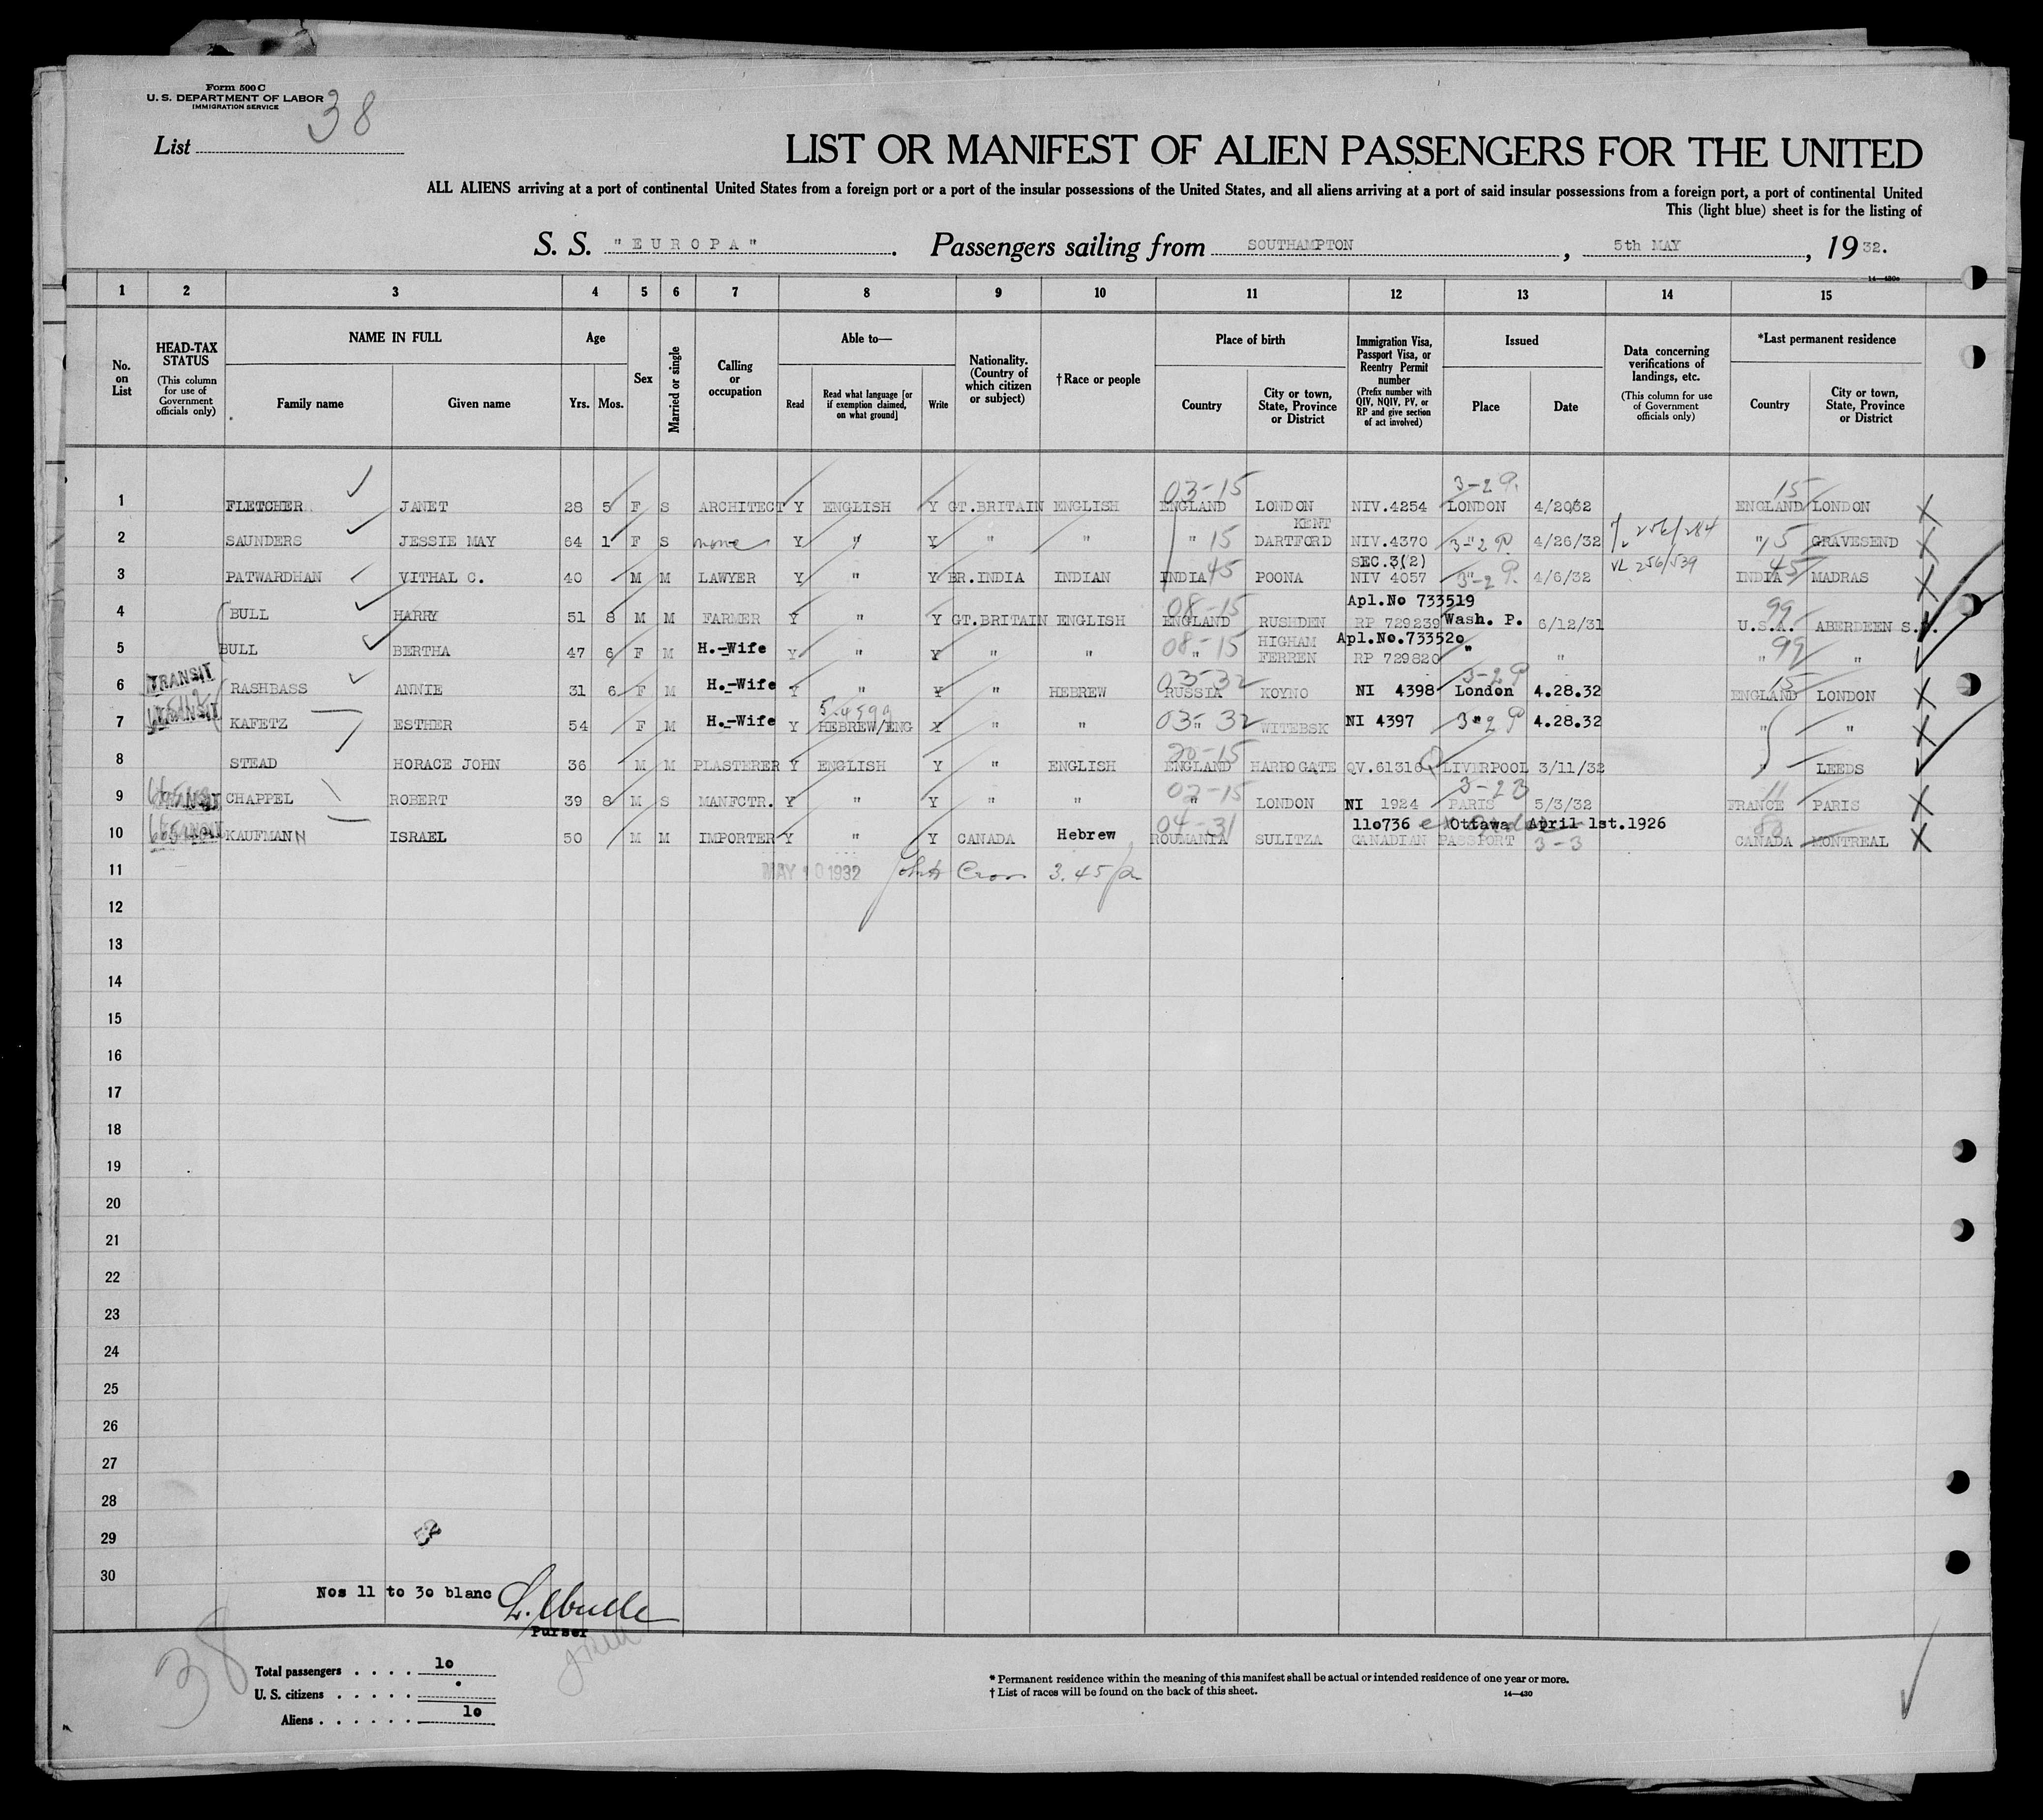 Form 500 C
U. S. DEPARTMENT OF LABOR
IMMIGRATION SERVICE
38
List
LIST OR MANIFEST OF ALIEN PASSENGERS FOR THE UNITED
ALL ALIENS arriving at a port of continental United States from a foreign port or a port of the insular possessions of the United States, and all aliens arriving at a port of said insular possessions from a foreign port, a port of continental United
This (light blue) sheet is for the listing of
S. S. "EUROPA". Passengers sailing from SOUTHAMPTON, 5th MAY, 1932.
14—430a
1 2 3 4 5 6 7 8 9 10 11 12 13 14 15
No. on List
HEAD-TAX STATUS (This column for use of Government officials only)
NAME IN FULL
Family name Given name
Age
Yrs. Mos.
Sex
Married or single
Calling or occupation
Able to—
Read
Read what language [or if exemption claimed, on what ground]
Write
Nationality. (Country of which citizen or subject)
†Race or people
Place of birth
Country
City or town, State, Province or District
Immigration Visa, Passport Visa, or Reentry Permit number (Prefix number with QIV, NQIV, PV, or RP and give section of act involved)
Issued
Place Date
Data concerning verifications of landings, etc. (This column for use of Government officials only)
*Last permanent residence
Country
City or town, State, Province or District
03-15 3-2 P. 15
1 FLETCHER JANET 28 5 F S ARCHITECT Y ENGLISH Y GT.BRITAIN ENGLISH ENGLAND LONDON NIV.4254 LONDON 4/20/32 ENGLAND LONDON X
KENT
2 SAUNDERS JESSIE MAY 64 1 F S none Y " Y " " " 15 DARTFORD NIV.4370 3-"2 P. 4/26/32 256/284 " 15 GRAVESEND X
SEC.3(2) VL 256/539
3 PATWARDHAN VITHAL C. 40 M M LAWYER Y " Y BR.INDIA INDIAN INDIA 45 POONA NIV 4057 3"-2 P. 4/6/32 INDIA 45 MADRAS X
08-15 Apl.No 733519 99
4 BULL HARRY 51 8 M M FARMER Y " Y GT.BRITAIN ENGLISH ENGLAND RUSHDEN RP 729239 Wash. P. 6/12/31 U.S.A. ABERDEEN S.D.
08-15 HIGHAM Apl.No.733520 99
5 BULL BERTHA 47 6 F M H.-Wife Y " Y " " " FERREN RP 729820 " " " "
TRANSIT 03-32 3-2 P 15
6 RASHBASS ANNIE 31 6 F M H.-Wife Y " Y " HEBREW RUSSIA KOYNO NI 4398 London 4.28.32 ENGLAND LONDON X
TRANSIT
7 KAFETZ ESTHER 54 F M H.-Wife Y HEBREW/ENG Y " " 03-"32 WITEBSK NI 4397 3"2 P 4.28.32 " " X
20-15
8 STEAD HORACE JOHN 36 M M PLASTERER Y ENGLISH Y " ENGLISH ENGLAND HARROGATE QV.61316 Q LIVERPOOL 3/11/32 " LEEDS
TRANSIT 02-15 3-23 11
9 CHAPPEL ROBERT 39 8 M S MANFCTR. Y " Y " " " LONDON NI 1924 PARIS 5/3/32 FRANCE PARIS X
04-31 110736 Ottawa April 1st.1926
10 KAUFMANN ISRAEL 50 M M IMPORTER Y " Y CANADA Hebrew ROUMANIA SULITZA CANADIAN PASSPORT 3-3 CANADA MONTREAL X
11 MAY 10 1932 3.45 pm
12
13
14
15
16
17
18
19
20
21
22
23
24
25
26
27
28
29
30
Nos 11 to 30 blanc
Purser
38
Total passengers . . . . 10
U. S. citizens . . . . .
Aliens . . . . . . 10
* Permanent residence within the meaning of this manifest shall be actual or intended residence of one year or more.
† List of races will be found on the back of this sheet. 14—430